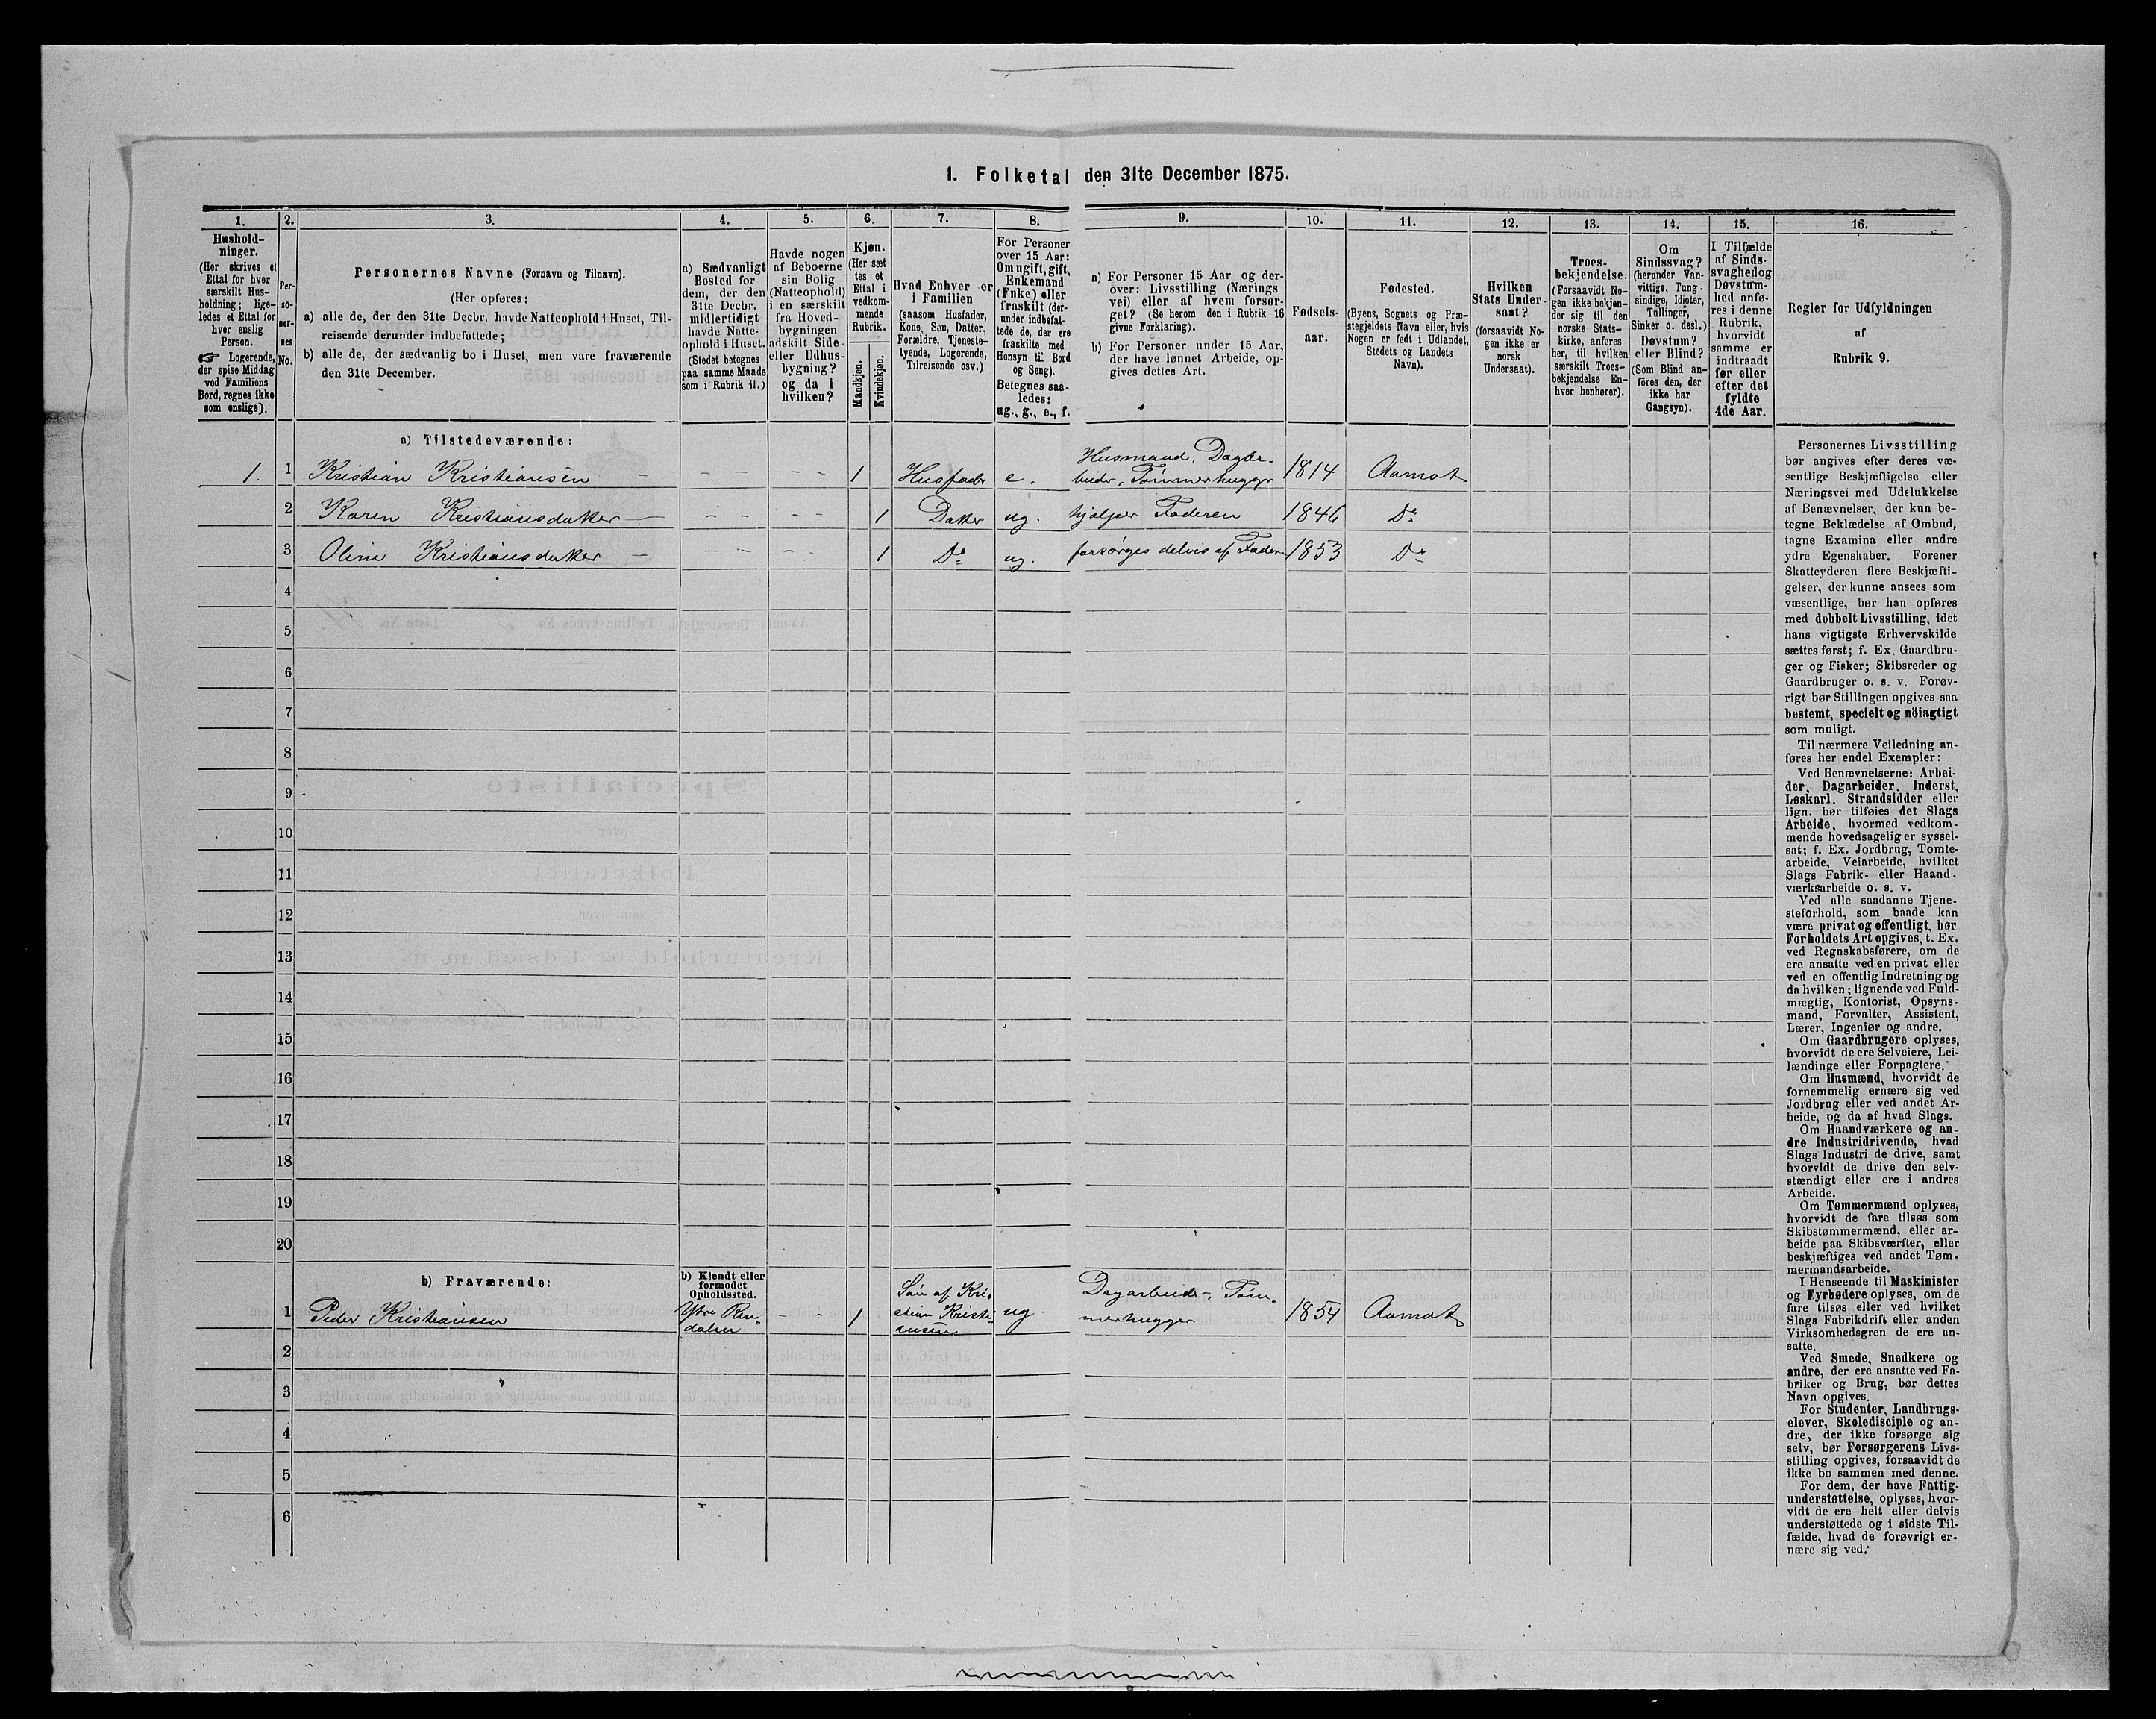 1. Folketal den 31te December 1875.
1.
2.
3.
4.
5.
6.
7.
8.
9.
10.
11.
12.
13.
14.
15.
16.
Hushold-
ninger.
(Her skrives et
Ettal for hver
særskilt Hus-
holdning; lige-
ledes et Ettal for
hver enslig
Person.
☞ Logerende,
der spise Middag
ved Familiens
Bord, regnes ikke
som enslige).
Per-
so-
ner-
nes
No.
Personernes Navne (Fornavn og Tilnavn).
(Her opføres:
a) alle de, der den 31te Decbr. havde Natteophold i Huset, Til-
reisende derunder indbefattede;
b) alle de, der sædvanlig bo i Huset, men vare fraværende
den 31te December.
a) Sædvanligt
Bosted for
dem, der den
31te Decbr.
midlertidigt
havde Natte-
ophold i Huset.
(Stedet betegnes
paa samme Maade
som i Rubrik 11.)
Havde nogen
af Beboerne
sin Bolig
(Natteophold)
i en særskilt
fra Hoved-
bygningen
adskilt Side-
eller Udhus-
bygning?
og da i
hvilken?
Kjøn.
(Her sæt-
tes et
Ettal i
vedkom-
mende
Rubrik.
Mandkjøn.
Kvindekjøn.
Hvad Enhver er
i Familien
(saasom Husfader,
Kone, Søn, Datter,
Forældre, Tjeneste-
tyende, Logerende,
Tilreisende osv.)
For Personer
over 15 Aar:
Om ugift, gift,
Enkemand
(Enke) eller
fraskilt (der-
under indbefat-
tede de, der ere
fraskilte med
Hensyn til Bord
og Seng).
Betegnes saa-
ledes:
ug., g., e., f.
a) For Personer 15 Aar og der-
over: Livsstilling (Nærings
vei) eller af hvem forsør-
get? (Se herom den i Rubrik 16
givne Forklaring).
b) For Personer under 15 Aar,
der have lønnet Arbeide, op-
gives dettes Art.
Fødsels-
aar.
Fødested.
(Byens, Sognets og Præ-
stegjeldets Navn eller, hvis
Nogen er født i Udlandet,
Stedets og Landets
Navn).
Hvilken
Stats Under-
saat?
(forsaavidt No-
gen ikke er
norsk
Undersaat).
Troes-
bekjendelse.
(Forsaavidt No-
gen ikke bekjen-
der sig til den
norske Stats-
kirke, anføres
her, til hvilken
særskilt Troes-
bekjendelse En-
hver henhører).
Om
Sindssvag?
(herunder Van-
vittige, Tung-
sindige, Idioter,
Tullinger,
Sinker o. desl.)
Døvstum?
eller Blind?
(Som Blind an-
föres den, der
ikke har
Gangsyn).
I Tilfælde
af Sinds-
svaghed og
Døvstum-
hed anfø-
res i denne
Rubrik,
hvorvidt
samme er
indtraadt
før eller
efter det
fyldte
4de Aar.
Regler for Udfyldningen
af
Rubrik 9.
a) Tilstedeværende:
1. 1 Kristian Kristiansen 1 Husfader e. Husmand, Dagar-
beider, Tømmerhugger 1814 Aamot
2 Karen Kristiansdatter 1 Datter ug. hjelper Faderen 1846 Do
3 Oline Kristiansdatter 1 Do ug. forsørges delvis af Faderen 1853 Do
4
5
6
7
8
9
10
11
12
13
14
15
16
17
18
19
20
b) Fraværende:
b) Kjendt eller
formodet
Opholdssted.
1 Peder Kristiansen Ytre Ren-
dalen 1 Søn af Kri-
stian Kristi-
ansen ug. Dagarbeider, Tøm-
merhugger 1854 Aamot
2
3
4
5
6
Personernes Livsstilling
bør angives efter deres væ-
sentlige Beskjæftigelse eller
Næringsvei med Udelukkelse
af Benævnelser, der kun be-
tegne Beklædelse af Ombud,
tagne Examina eller andre
ydre Egenskaber. Forener
Skatteyderen flere Beskjæfti-
gelser, der kunne ansees som
væsentlige, bør han opføres
med dobbelt Livsstilling, idet
hans vigtigste Erhvervskilde
sættes først; f. Ex. Gaardbru-
ger og Fisker; Skibsreder og
Gaardbruger o. s. v. Forøv-
rigt bør Stillingen opgives saa
bestemt, specielt og nöiagtigt
som muligt.
Til nærmere Veiledning an-
føres her endel Exempler:
Ved Benævnelserne: Arbei-
der, Dagarbeider, Inderst,
Løskarl, Strandsidder eller
lign. bør tilføies det Slags
Arbeide, hvormed vedkom-
mende hovedsagelig er syssel-
sat; f. Ex. Jordbrug, Tomte-
arbeide, Veiarbeide, hvilket
Slags Fabrik- eller Haand-
værksarbeide o. s. v.
Ved alle saadanne Tjene-
steforhold, som baade kan
være privat og offentligt, bør
Forholdets Art opgives, t. Ex.
ved Regnskabsførere, om de
ere ansatte ved en privat eller
ved en offentlig Indretning og
da hvilken; lignende ved Fuld-
mægtig, Kontorist, Opsyns-
mand, Forvalter, Assistent,
Lærer, Ingeniør og andre.
Om Gaardbrugere oplyses,
hvorvidt de ere Selveiere, Lei-
lændinge eller Forpagtere.
Om Husmænd, hvorvidt de
fornemmelig ernære sig ved
Jordbrug eller ved andet Ar-
beide, og da af hvad Slags.
Om Haandværkere og an-
dre Industridrivende, hvad
Slags Industri de drive, samt
hvorvidt de drive den selv-
stændigt eller ere i andres
Arbeide.
Om Tømmermænd oplyses,
hvorvidt de fare tilsøs som
Skibstømmermænd, eller ar-
beide paa Skibsværfter, eller
beskjæftiges ved andet Tøm-
mermandsarbeide.
I Henseende til Maskinister
og Fyrbødere oplyses, om de
fare tilsøs eller ved hvilket
Slags Fabrikdrift eller anden
Virksomhedsgren de ere an-
satte.
Ved Smede, Snedkere og
andre, der ere ansatte ved Fa-
briker og Brug, bør dettes
Navn opgives.
For Studenter, Landbrugs-
elever, Skoledisciple og an-
dre, der ikke forsørge sig
selv, bør Forsørgerens Livs-
stilling opgives, forsaavidt de
ikke bo sammen med denne.
For dem, der have Fattig-
understøttelse, oplyses, hvor-
vidt de ere helt eller delvis
understøttede og i sidste Til-
fælde, hvad de forøvrigt er-
nære sig ved.